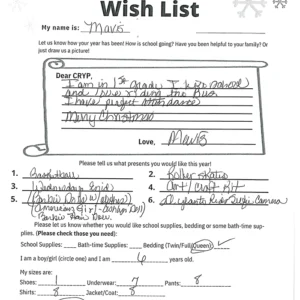 Wish List
My name is: Mavis
Let us know how your year has been! How is school going? Have you been helpful to your family? Or
just draw us a picture!
Dear CRYP,
I am in 1st Grade, I like School
and I love riding the Bus.
I have perfect attendance
Merry Christmas
Love, Mavis
Please tell us what presents you would like this year!
1. Basketball
2. Roller Skates
3. Wednesday
4. Art/Craft Kit
5. (Barbie
(American Girl -
Barbie
6. Kids Camera
Please let us know whether you would like school supplies, bedding or some bath-time sup-
plies. (Please check those you need):
School Supplies: Bath-time Supplies: Bedding (Twin/Full/Queen) ✓
I am a boy/girl (circle one) and I am 6 years old.
My sizes are:
Shoes: 1 Underwear: 7 Pants: 8
Shirts: 8 Jacket/Coat: 8